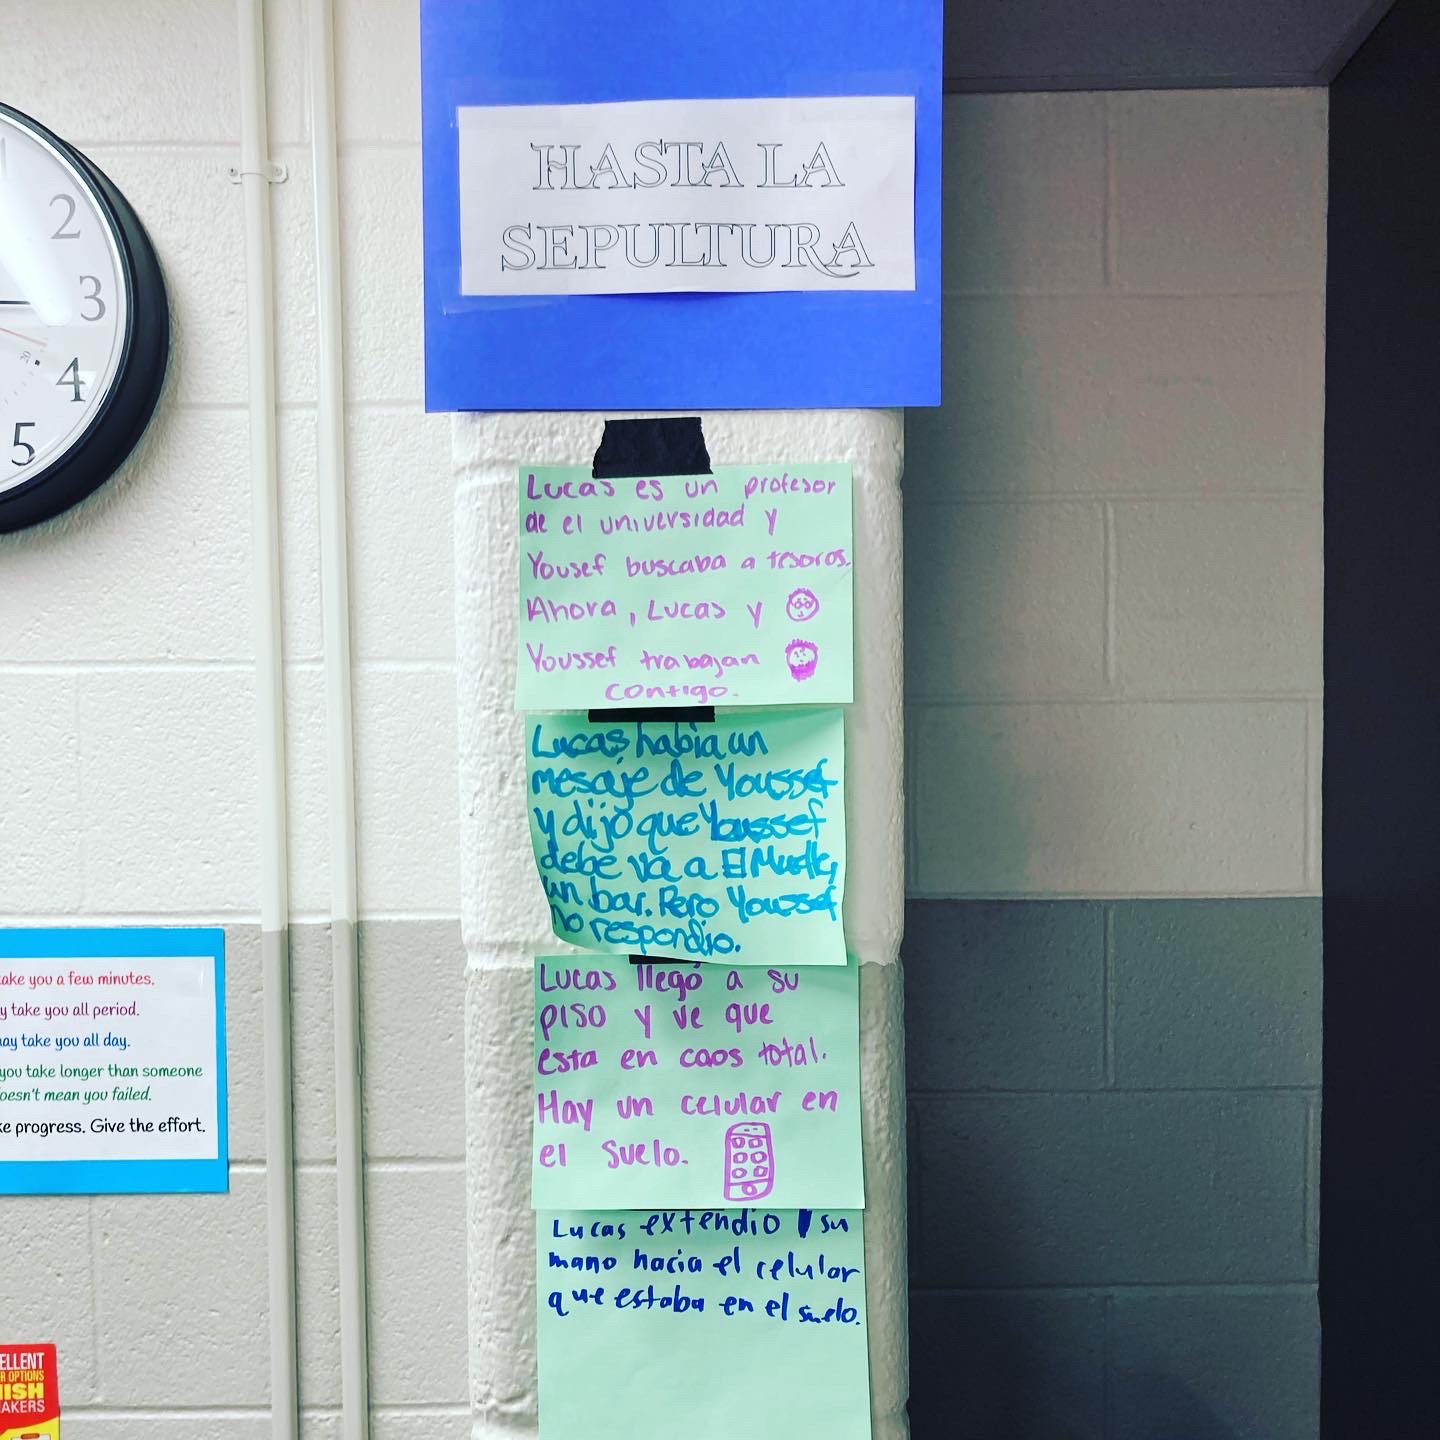 HASTA LA
SEPULTURA
Lucas es un profesor
de el universidad y
Yousef buscaba a tesoros.
Ahora, Lucas y
Youssef trabajan
contigo.
Lucas habia un
mesaje de Youssef
y dijo que Youssef
debe va a El
un bar. Pero Youssef
no respondio.
Lucas llegó a su
piso y ve que
esta en caos total.
Hay un celular en
el suelo.
Lucas extendio su
mano hacia el celular
que estaba en el suelo.
2
3
4
5
20
take you a few minutes.
y take you all period.
may take you all day.
you take longer than someone
doesn't mean you failed.
ke progress. Give the effort.
ELLENT
R OPTIONS
NISH
AKERS